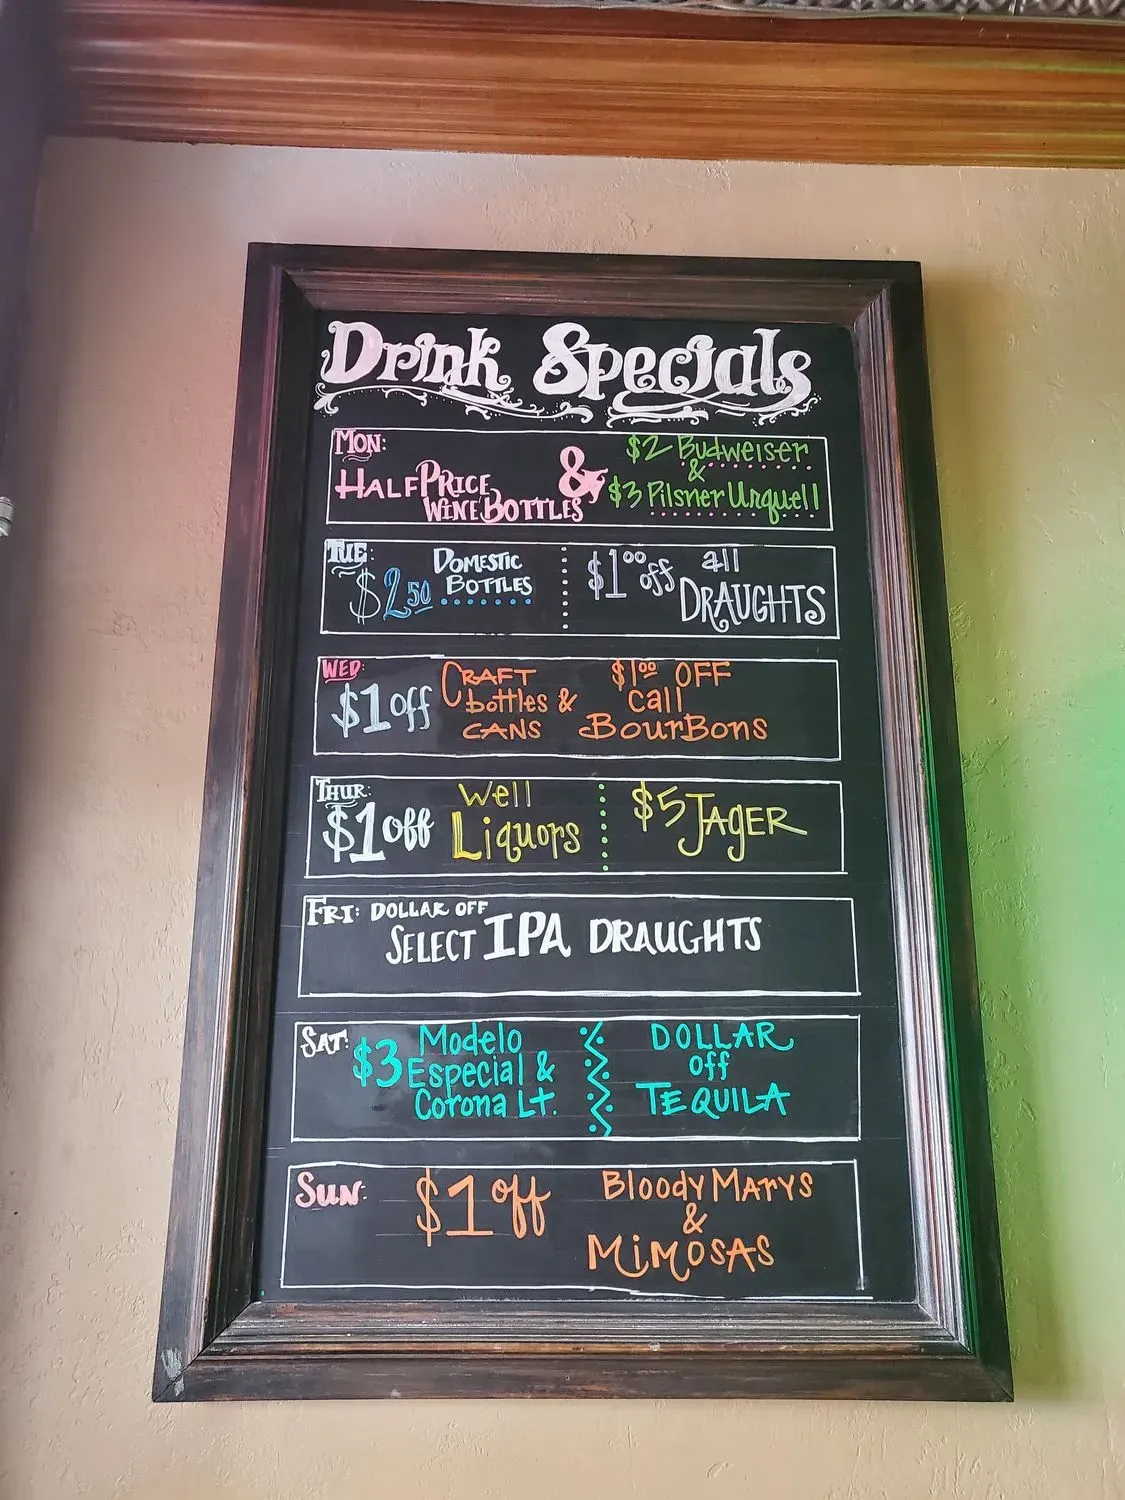 Drink Specials
MON:
HALF PRICE
WINE BOTTLES
&
$2 Budweiser
&
$3 Pilsner Urquell
TUE:
$2.50 DOMESTIC
BOTTLES
$1.00 off all
DRAUGHTS
WED:
$1 off CRAFT
bottles &
CANS
$1.00 OFF
Call
BourBons
THUR:
$1 off Well
Liquors
$5 JAGER
FRI: DOLLAR OFF
SELECT IPA DRAUGHTS
SAT:
$3 Modelo
Especial &
Corona Lt.
DOLLAR
off
TEQUILA
SUN:
$1 off
Bloody Marys
&
MiMOSAS